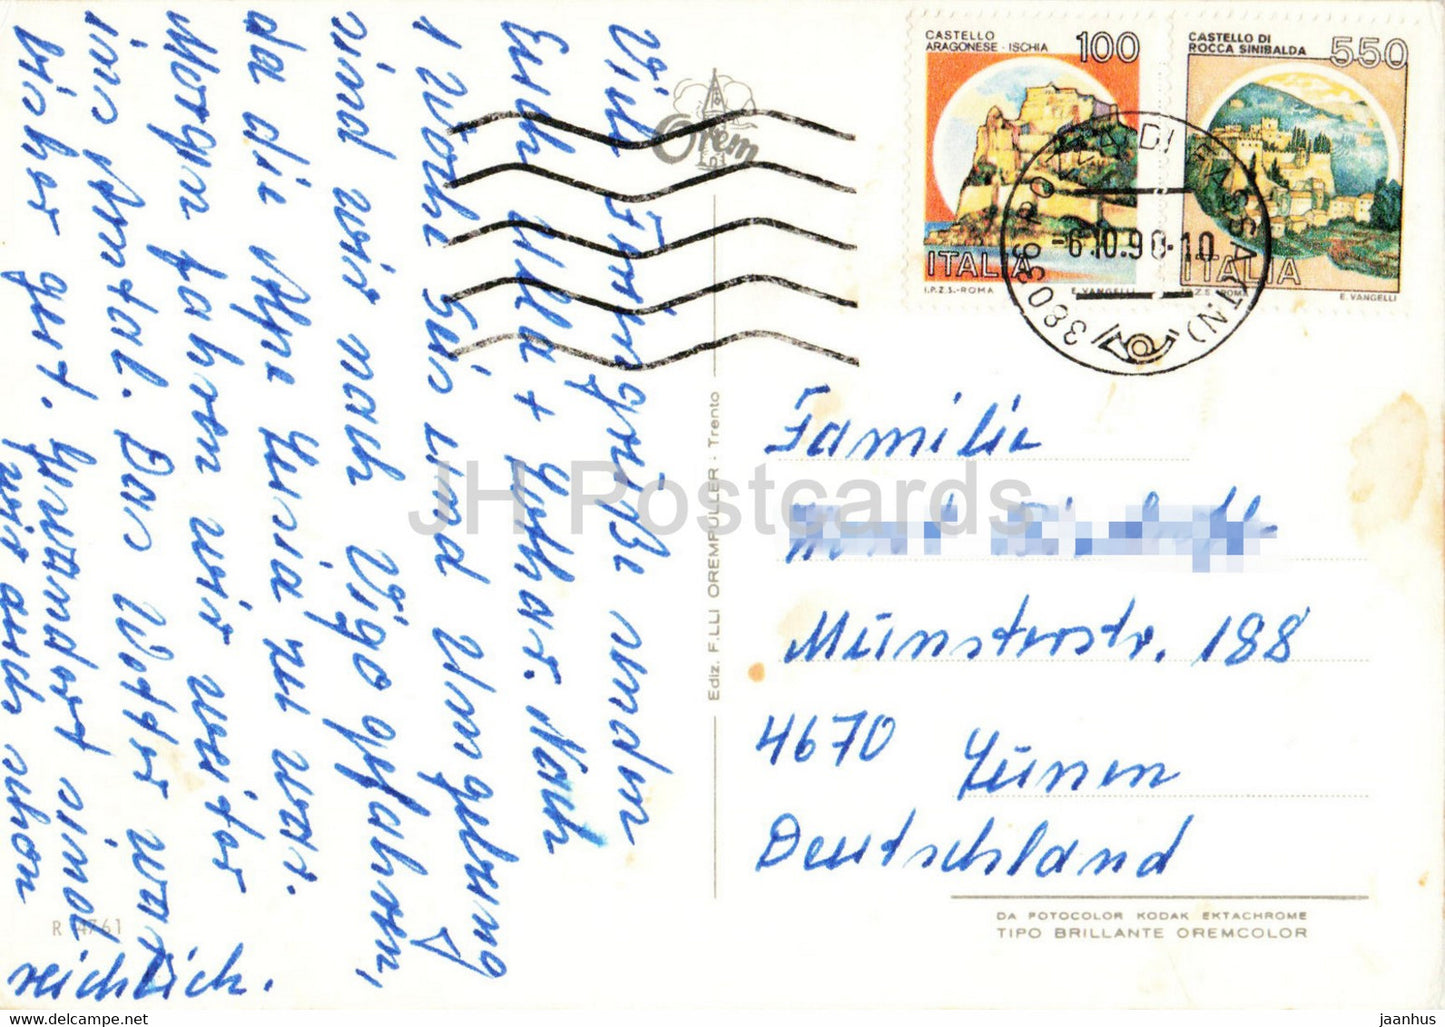 Viele Feriengrüße senden
Euch Ulla + Lothar. Nach
1 Woche Seis und Umgebung
sind wir nach Vigo gefahren,
da die Alpe Lusia zu war.
Morgen fahren wir weiter
ins Ahrntal. Das Wetter war
bisher gut. Gewandert sind
wir auch schon
reichlich.
R 4761
Orem
Ediz. F.LLI OREMPULLER - Trento
CASTELLO
ARAGONESE - ISCHIA 100
ITALIA
I.P.Z.S.-ROMA E. VANGELLI
CASTELLO DI
ROCCA SINIBALDA 550
ITALIA
I.P.Z.S. ROMA E. VANGELLI
38036 POZZA DI FASSA (TN)
-6.10.90-10
Familie
Münsterstr. 188
4670 Lünen
Deutschland
DA FOTOCOLOR KODAK EKTACHROME
TIPO BRILLANTE OREMCOLOR
JH Postcards
jaanhus